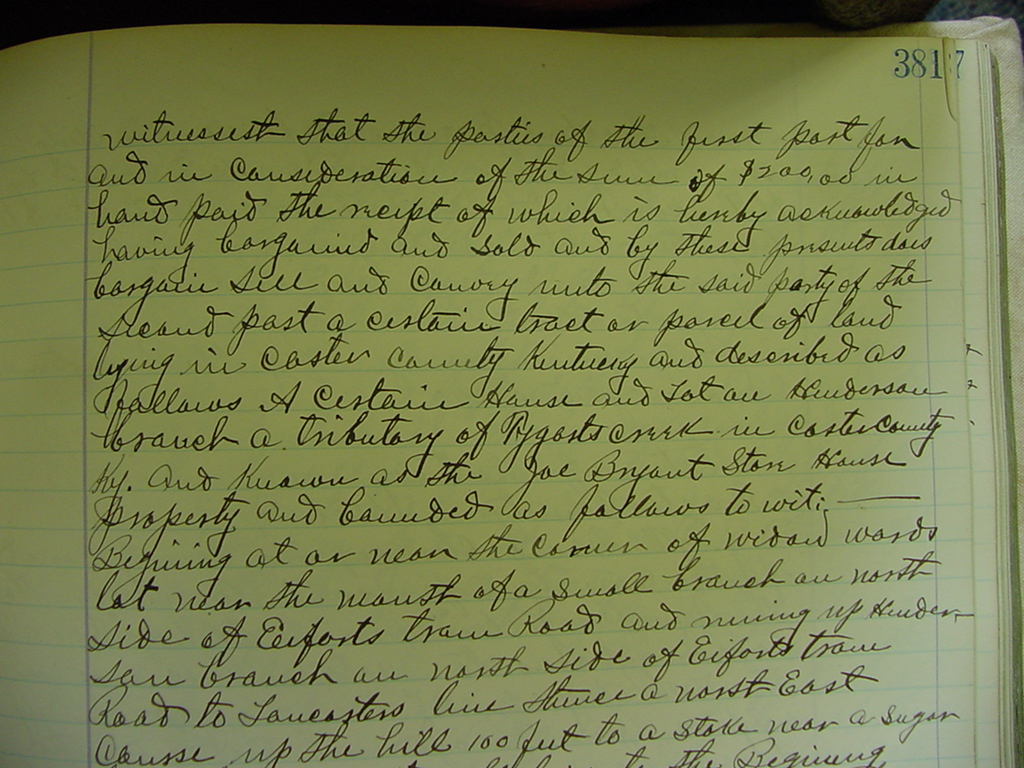 381 7
witnessest that the parties of the first part for
and in consideration of the sum of $200.00 in
hand paid the recipt of which is hereby acknowledged
having bargained and sold and by these presents does
bargain sell and convey unto the said party of the
second part a certain tract or parcel of land
lying in Carter County Kentucky and described as
follows A certain House and Lot on Henderson
branch a tributary of Tygarts creek in Carter County
Ky. and Known as the Joe Bryant Store House
property and bounded as follows to wit:
Begining at or near the corner of widow wards
lot near the mouth of a small branch on north
side of Eiforts tram Road and runing up Hender-
son branch on north side of Eiforts tram
Road to Lancasters line thence a north East
Course up the hill 100 feet to a stake near a sugar
to the Begining